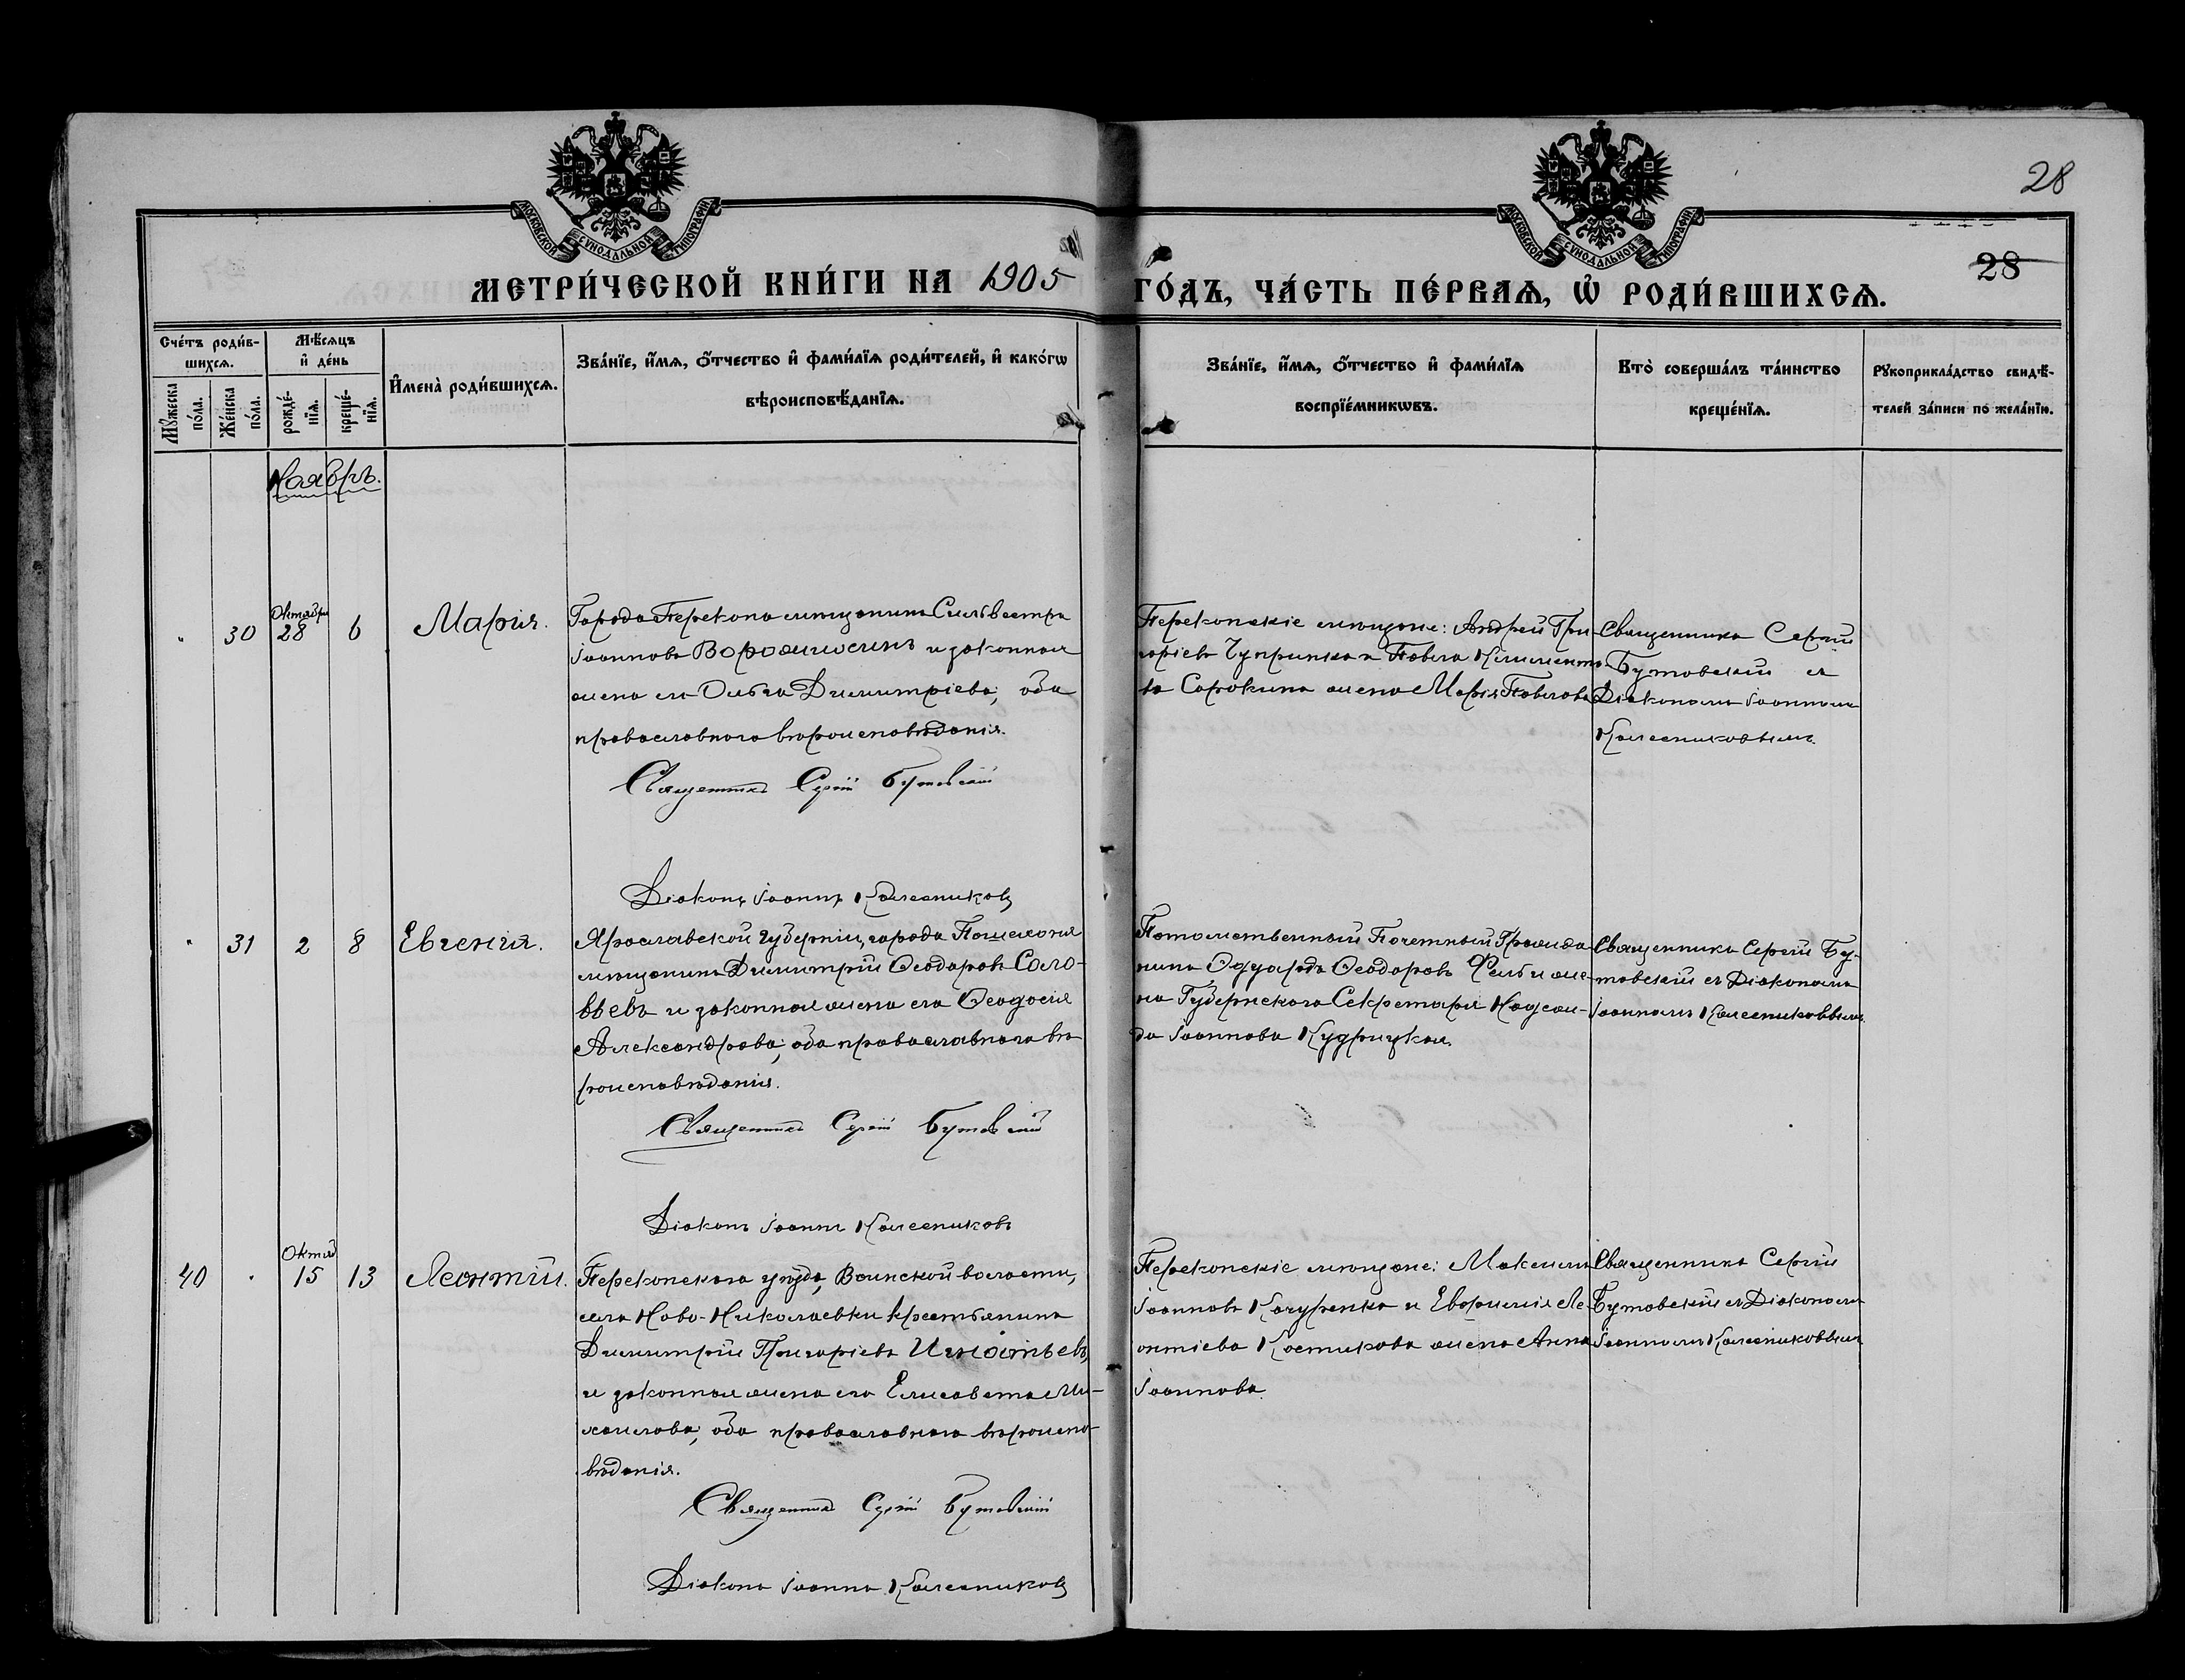 28
28
МОСКОВСКОЙ СУНОДАЛЬНОЙ ТИПОГРАФІИ
МОСКОВСКОЙ СУНОДАЛЬНОЙ ТИПОГРАФІИ
МЕТРИ́ЧЕСКОЙ КНИ́ГИ НА 1905
ГО́ДЪ, ЧА́СТЬ ПЕ́РВАѦ, Ѡ҆ РОДИ́ВШИХСѦ.
Сче́тъ роди́в-
шихсѧ.
Мꙋ́жеска
по́ла.
Же́нска
по́ла.
Мѣ́сѧцъ
и҆ де́нь
рожде́-
нїѧ.
креще́-
нїѧ.
И҆мена̀ роди́вшихсѧ.
Зва́нїе, и҆́мѧ, ѻ҆́тчество и҆ фами́лїѧ роди́телей, и҆ како́гѡ
вѣроисповѣ́данїѧ.
Зва́нїе, и҆́мѧ, ѻ҆́тчество и҆ фами́лїѧ
воспрїе́мникѡвъ.
Кто̀ соверша́лъ та́инство
креще́нїѧ.
Рꙋкоприкла́дство свидѣ́-
телей за́писи по жела́нїю.
Ноябрь.
"
30
Октября
28
6
Марія.
Города Перекопа мѣщанинъ Сильвестръ
Іоанновъ и законная
жена его Ольга Димитріева, оба
православнаго вѣроисповѣданія.
Священникъ Сергій Бутовскій
Діаконъ Іоаннъ Колесниковъ
Перекопскіе мѣщане: Андрей Гри-
горіевъ Чупринка и Павла Климента
Сорокина жена Марія Павлова
Священникъ Сергій
Бутовскій съ
Діакономъ Іоанномъ
Колесниковымъ.
"
31
2
8
Евгенія.
Ярославской губерніи, города Пошехонья
мѣщанинъ Димитрій Ѳеодоровъ Соло-
вьевъ и законная жена его Ѳеодосія
Александрова; оба православнаго вѣ
роисповѣданія.
Священникъ Сергій Бутовскій
Діаконъ Іоаннъ Колесниковъ
Потомственный Почетный Гражда-
нинъ Эдуардъ Ѳеодоровъ и же-
на Губернскаго Секретаря Надеж-
да Іоаннова Кудрицкая.
Священникъ Сергій Бу-
товскій съ Діакономъ
Іоанномъ Колесниковымъ.
40
"
Октяб
15
13
Леонтій.
Перекопскаго уѣзда, Воинской волости,
села Ново-Николаевки крестьянинъ
Димитрій Григоріевъ Игнатьевъ,
и законная жена его Елисавета Ми-
хаилова, оба православнаго вѣроиспо-
вѣданія.
Священникъ Сергій Бутовскій
Діаконъ Іоаннъ Колесниковъ
Перекопскіе мѣщане: Максимъ
Іоанновъ и Ле-
онтіева Костикова жена Анна
Іоаннова.
Священникъ Сергій
Бутовскій съ Діакономъ
Іоанномъ Колесниковымъ